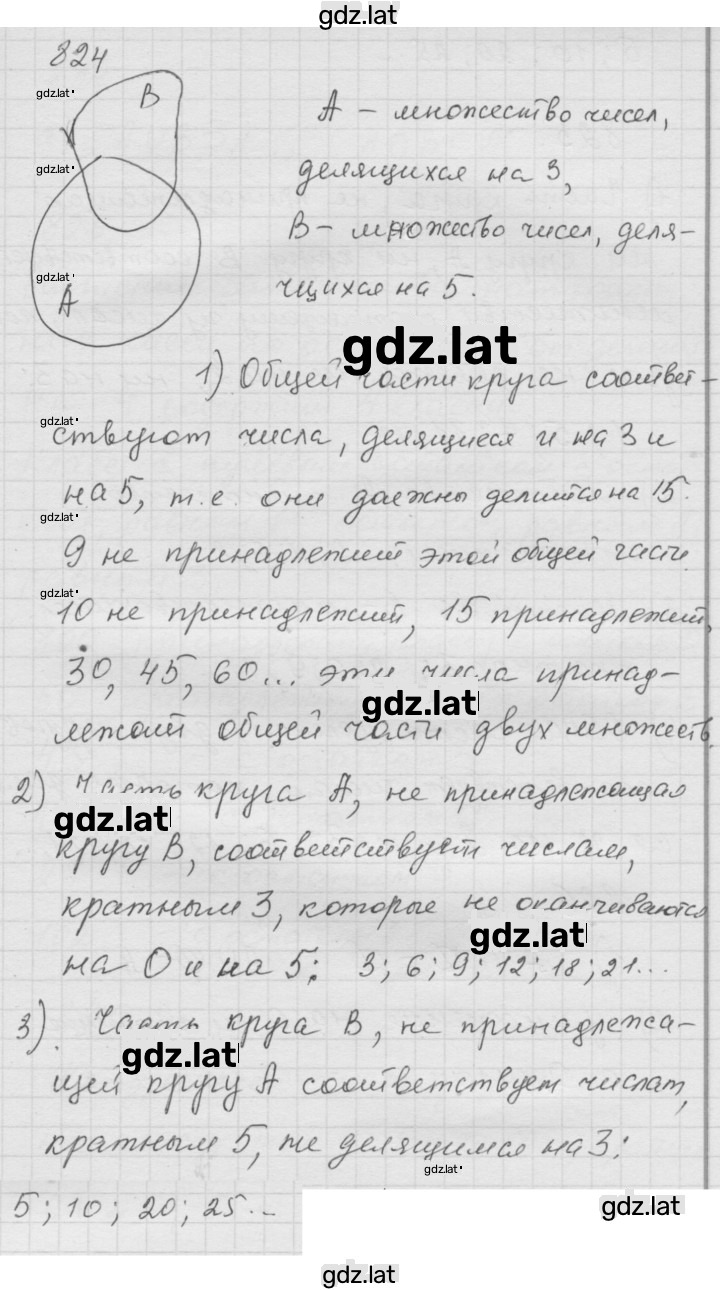 gdz.lat
824
gdz.lat
B
А – множество чисел,
gdz.lat
делящихся на 3,
В – множество чисел, деля-
gdz.lat
A
щихся на 5.
gdz.lat
1) Общей части круга соответ-
gdz.lat
ствуют числа, делящиеся и на 3 и
на 5, т.е. они должны делится на 15.
gdz.lat
9 не принадлежит этой общей части.
gdz.lat
10 не принадлежит, 15 принадлежит,
30, 45, 60... эти числа принад-
gdz.lat
лежат общей части двух множеств.
2) Часть круга А, не принадлежащая
gdz.lat
кругу В, соответствует числам,
кратным 3, которые не оканчиваются
gdz.lat
на 0 и на 5: 3; 6; 9; 12; 18; 21...
3) Часть круга В, не принадлежа-
gdz.lat
щей кругу А соответствует числам,
кратным 5, не делящимся на 3:
gdz.lat
5; 10; 20; 25...
gdz.lat
gdz.lat